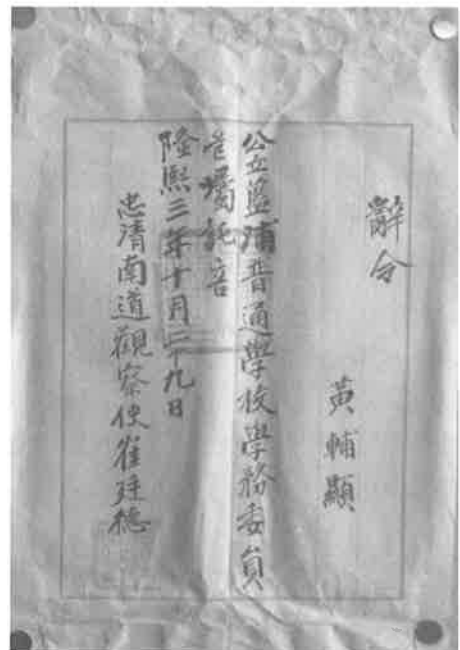 辭令
黃輔顯
公立藍浦普通學校學務委員
을囑託홈
隆熙三年十月二十九日
忠淸南道觀察使崔廷德